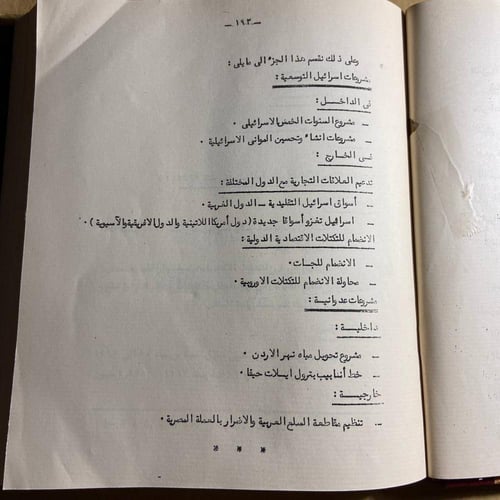 — ١٩٣ —
وعلى ذلك نقسم هذا الجزء الى مايلى :
مشروعات اسرائيل التوسعية :
فى الداخــل :
— مشروع السنوات الخمس الاسرائيلى ٠
— مشروعات انشاء وتحسين الموانى الاسرائيلية ٠
فــى الخارج :
تدعيم العلاقات التجارية مع الدول المختلفة :
— أسواق اسرائيل التقليدية — الدول الغربية ٠
— اسرائيل تغزو أسواقا جديدة (دول أمريكا اللاتينية والدول الافريقية والآسيوية ) ٠
الانضمام للتكتلات الاقتصادية الدولية :
— الانضمام للجات ٠
— محاولة الانضمام للتكتلات الاوروبية ٠
مشروعات عدوانية :
داخليــة :
— مشروع تحويل مياه نهر الاردن ٠
— خط أنابيب بترول ايلات حيفا ٠
خارجيــة :
— تنظيم مقاطعة السلع العربية والاضرار بالعملة المصرية ٠
* * *